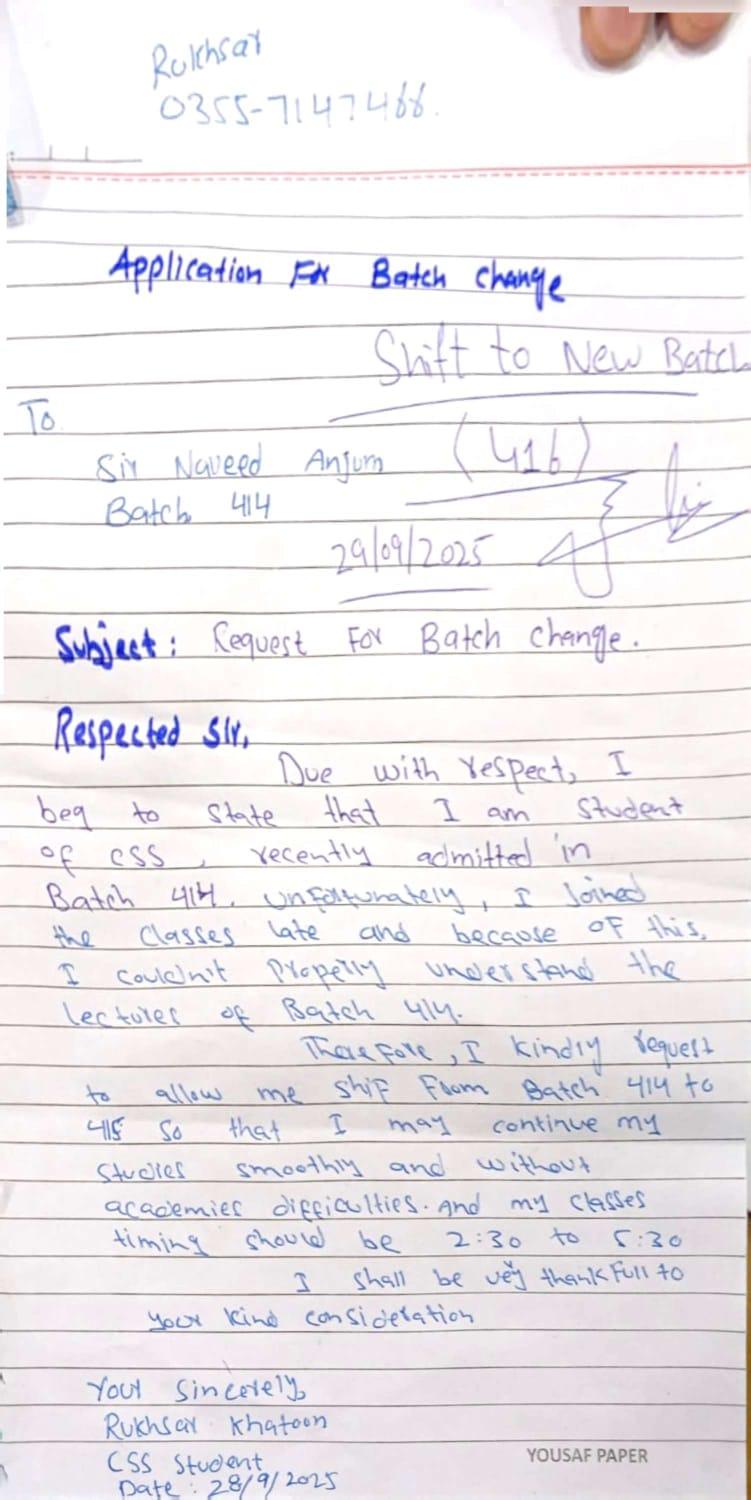 Rukhsar
0355-7147466.
Application For Batch change
Shift to New Batch
To
(416)
Sir Naveed Anjum
Batch 414
29/09/2025
Subject: Request For Batch change.
Respected Sir,
Due with respect, I
beg to state that I am student
of CSS, recently admitted in
Batch 414. unfortunately, I Joined
the classes late and because of this,
I couldn't Properly understand the
lectures of Batch 414.
Therefore, I kindly request
to allow me ship From Batch 414 to
415 so that I may continue my
studies smoothly and without
academies difficulties. And my classes
timing should be 2:30 to 5:30
I shall be very thankfull to
your kind consideration
Your Sincerely,
Rukhsar Khatoon
CSS Student
Date: 28/9/2025
YOUSAF PAPER